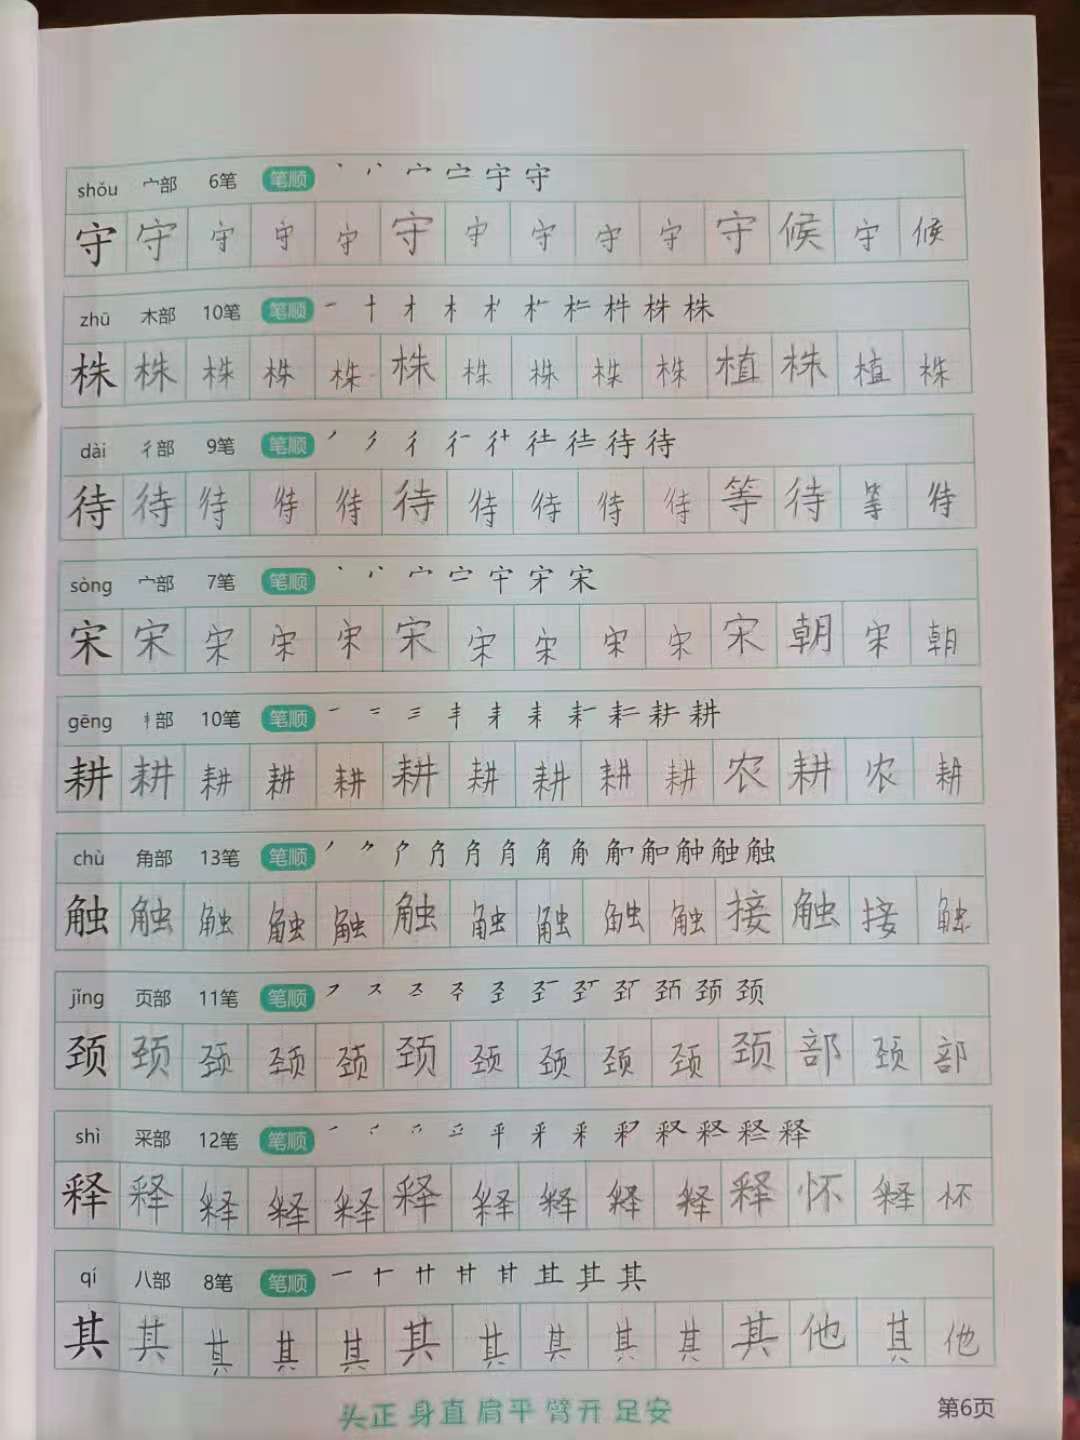 shǒu 宀部 6笔 笔顺 丶 丷 宀 宁 守
守 守 守 守 守 守 守 守 守 守 守 候 守 候
zhū 木部 10笔 笔顺 一 十 才 木 株 株
株 株 株 株 株 株 株 株 株 株 植 株 植 株
dài 彳部 9笔 笔顺 丿 彳 彳 待 待
待 待 待 待 待 待 待 待 待 待 等 待 等 待
sòng 宀部 7笔 笔顺 丶 丷 宀 宋 宋
宋 宋 宋 宋 宋 宋 宋 宋 宋 宋 宋 朝 宋 朝
gēng 10笔 笔顺 一 二 三 丰 耒 耒 耕 耕
耕 耕 耕 耕 耕 耕 耕 耕 耕 耕 农 耕 农 耕
chù 角部 13笔 笔顺 丿 角 触 触
触 触 触 触 触 触 触 触 触 触 接 触 接 触
jǐng 页部 11笔 笔顺 颈 颈
颈 颈 颈 颈 颈 颈 颈 颈 颈 颈 颈 部 颈 部
shì 采部 12笔 笔顺 一 释
释 释 释 释 释 释 释 释 释 释 释 怀 释 怀
qí 八部 8笔 笔顺 一 十 廾 甘 其 其
其 其 其 其 其 其 其 其 其 其 其 他 其 他
头正 身直 肩平 臂开 足安
第6页